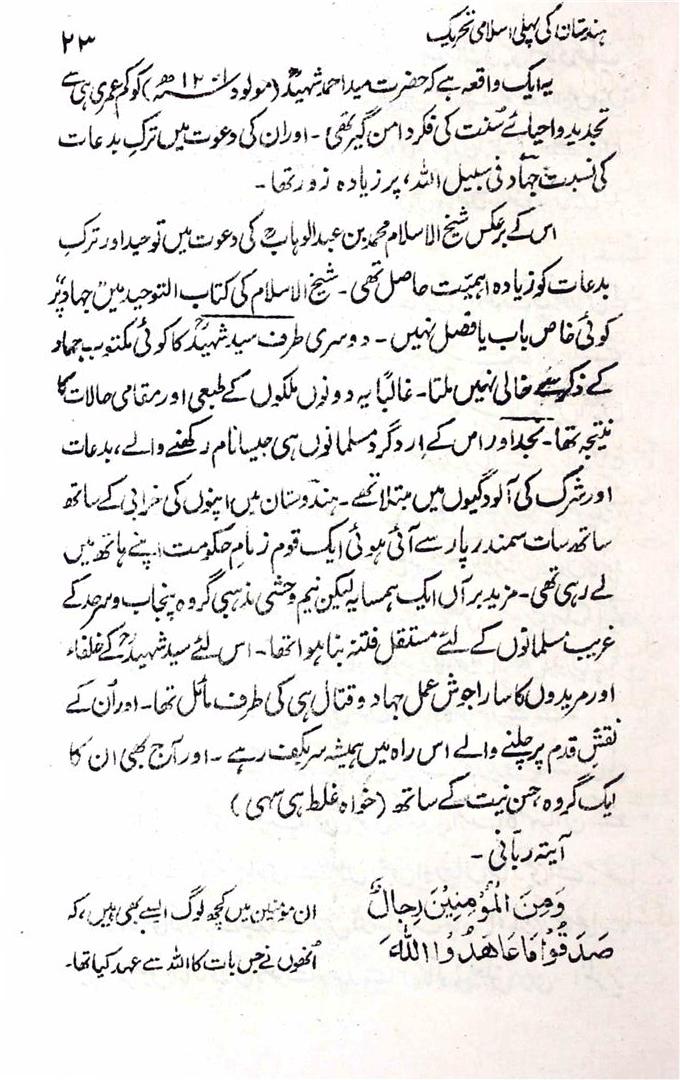 ہندستان کی پہلی اسلامی تحریک ۲۳
یہ ایک واقعہ ہے کہ حضرت سید احمد شہیدؒ (مولود ۱۲۰۱ھ) کو کم عمری ہی سے
تجدید و احیائے سنت کی فکر دامن گیر تھی ۔ اور ان کی دعوت میں ترک بدعات
کی نسبت جہاد فی سبیل اللہ، پر زیادہ زور تھا ۔
اس کے برعکس شیخ الاسلام محمد بن عبدالوہابؒ کی دعوت میں توحید اور ترکِ
بدعات کو زیادہ اہمیّت حاصل تھی ۔ شیخ الاسلام کی کتاب التوحید میں جہاد پر
کوئی خاص باب یا فصل نہیں ۔ دوسری طرف سید شہیدؒ کا کوئی مکتوب جہاد
کے ذکر سے خالی نہیں ملتا ۔ غالبًا یہ دونوں ملکوں کے طبعی اور مقامی حالات کا
نتیجہ تھا ۔ نجد اور اس کے ارد گرد مسلمانوں ہی جیسا نام رکھنے والے، بدعات
اور شرک کی آلودگیوں میں مبتلا تھے ۔ ہندوستان میں اپنوں کی خرابی کے ساتھ
ساتھ سات سمندر پار سے آئی ہوئی ایک قوم زمامِ حکومت اپنے ہاتھ میں
لے رہی تھی ۔ مزید برآں ایک ہمسایہ لیکن نیم وحشی مذہبی گروہ پنجاب و سرحد کے
غریب مسلمانوں کے لئے مستقل فتنہ بنا ہوا تھا ۔ اس لئے سید شہیدؒ کے خلفاء
اور مریدوں کا سارا جوش عمل جہاد و قتال ہی کی طرف مائل تھا ۔ اور اُن کے
نقشِ قدم پر چلنے والے اس راہ میں ہمیشہ سربکف رہے ۔ اور آج بھی ان کا
ایک گروہ حسن نیت کے ساتھ (خواہ غلط ہی سہی)
آیتہ ربّانی ۔
وَمِنَ الْمُؤْمِنِیْنَ رِجَالٌ ان مومنین میں کچھ لوگ ایسے بھی ہیں، کہ
صَدَقُوْا مَا عَاهَدُوا اللّٰهَ انھوں نے جس بات کا اللہ سے عہد کیا تھا ۔